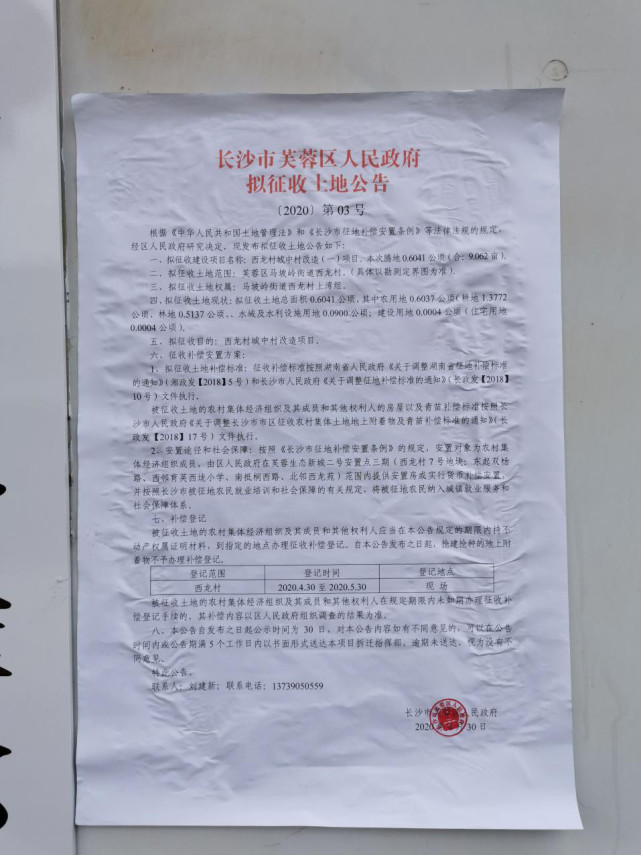 长沙市芙蓉区人民政府
拟征收土地公告
〔2020〕第 03 号
根据《中华人民共和国土地管理法》和《长沙市征地补偿安置条例》等法律法规的规定，
经区人民政府研究决定，现发布拟征收土地公告如下：
一、拟征收建设项目名称：西龙村城中村改造（一）项目，本次腾地 0.6041 公顷（合：9.062 亩）。
二、拟征收土地范围：芙蓉区马坡岭街道西龙村。（具体以勘测定界图为准）。
三、拟征收土地权属：马坡岭街道西龙村上湾组。
四、拟征收土地现状：拟征收土地总面积 0.6041 公顷，其中农用地 0.6037 公顷（耕地 1.3772
公顷、林地 0.5137 公顷、、水域及水利设施用地 0.0900 公顷；建设用地 0.0004 公顷（住宅用地
0.0004 公顷）。
五、拟征收目的：西龙村城中村改造项目。
六、征收补偿安置方案：
1、拟征收土地补偿标准：征收补偿标准按照湖南省人民政府《关于调整湖南省征地补偿标准
的通知》（湘政发【2018】5 号）和长沙市人民政府《关于调整征地补偿标准的通知》（长政发【2018】
10 号）文件执行。
被征收土地的农村集体经济组织及其成员和其他权利人的房屋以及青苗补偿标准按照长
沙市人民政府《关于调整长沙市市区征收农村集体土地地上附着物及青苗补偿标准的通知》（长
政发【2018】17 号）文件执行。
2、安置途径和社会保障：按照《长沙市征地补偿安置条例》的规定，安置对象为农村集
体经济组织成员，由区人民政府在芙蓉生态新城二号安置点三期（西龙村 7 号地块：东起双杨
路、西邻育英西龙小学、南抵桐西路、北邻西龙苑）范围内提供安置房或实行货币补偿安置，
并按照长沙市被征地农民就业培训和社会保障的有关规定，将被征地农民纳入城镇就业服务和
社会保障体系。
七、补偿登记
被征收土地的农村集体经济组织及其成员和其他权利人应当在本公告规定的期限内持不
动产权属证明材料，到指定的地点办理征收补偿登记。自本公告发布之日起，抢建抢种的地上附
着物不予办理补偿登记。
登记范围 登记时间 登记地点
西龙村 2020.4.30 至 2020.5.30 现 场
被征收土地的农村集体经济组织及其成员和其他权利人在规定期限内未如期办理征收补
偿登记手续的，其补偿内容以区人民政府组织调查的结果为准。
八、本公告自发布之日起公示时间为 30 日。对本公告内容如有不同意见的，可以在公告
时间内或公告期满 5 个工作日内以书面形式送达本项目拆迁指挥部，逾期未送达，视为没有不
同意见。
特此公告。
联系人：刘建新；联系电话：13739050559
长沙市 人民政府
2020 30 日